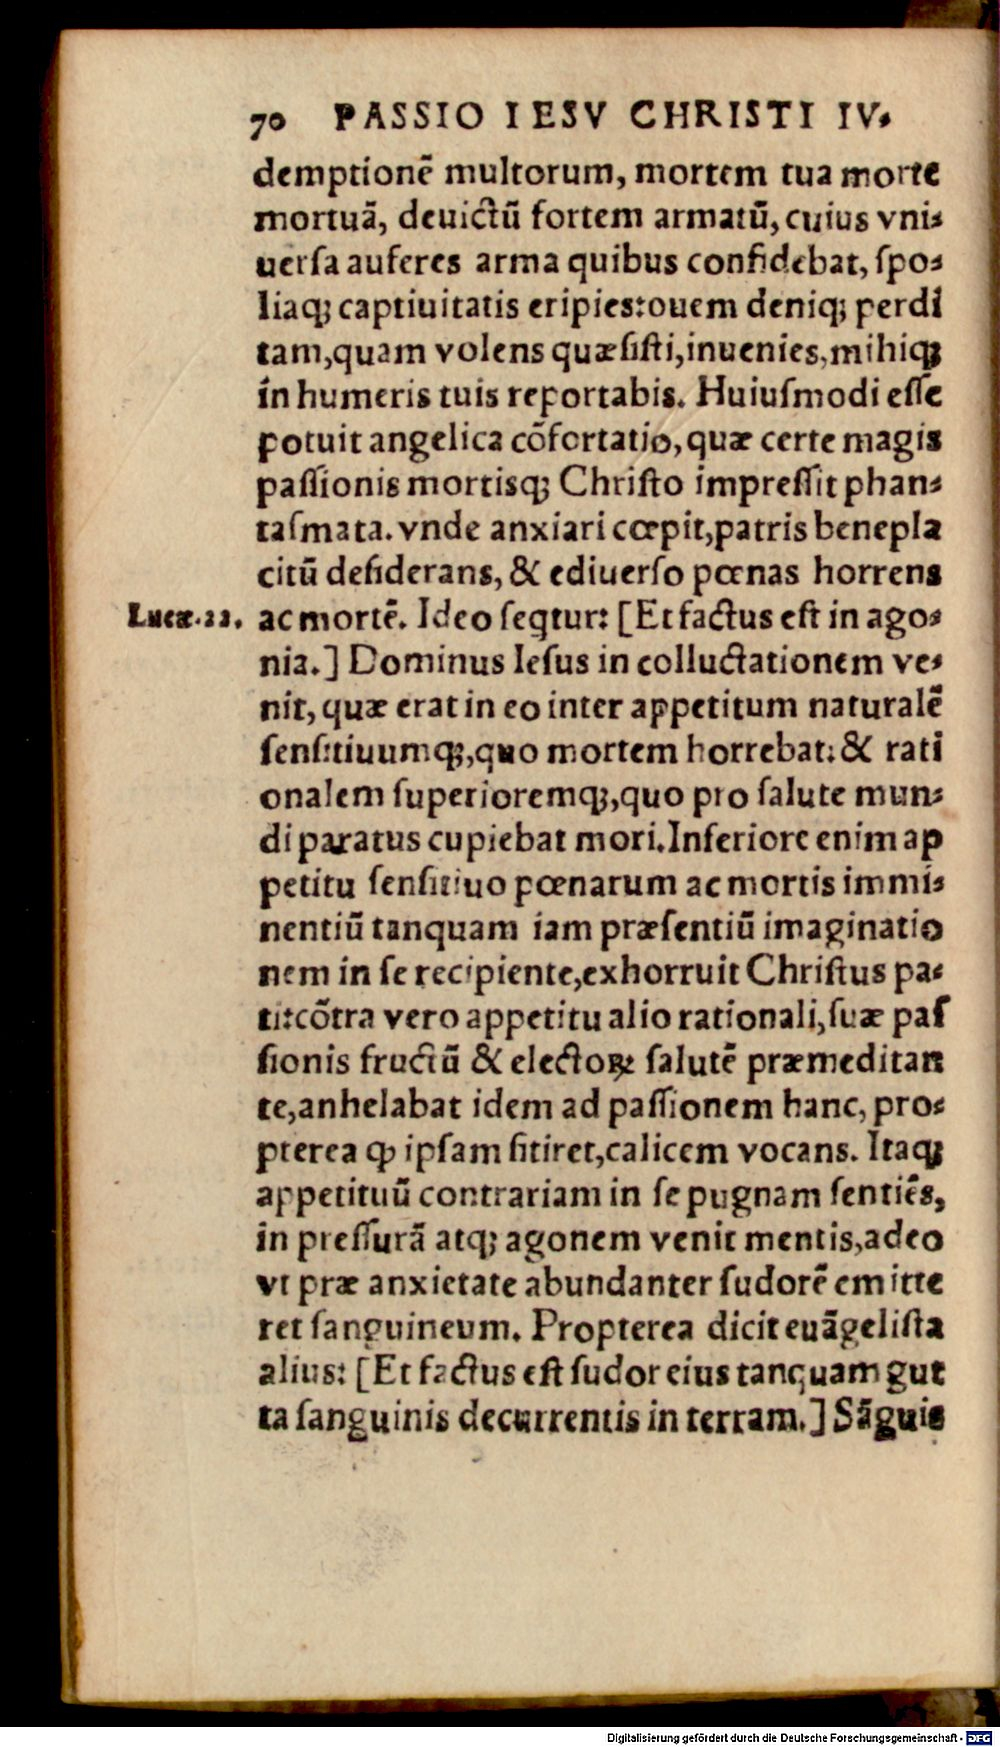 70 PASSIO IESV CHRISTI IV.
demptionē multorum, mortem tua morte
mortuā, deuictū fortem armatū, cuius vni⸗
uersa auferes arma quibus confidebat, spo⸗
liaq; captiuitatis eripies: ouem deniq; perdi
tam, quam volens quæsisti, inuenies, mihiq;
in humeris tuis reportabis. Huiusmodi esse
potuit angelica cōfortatio, quæ certe magis
passionis mortisq; Christo impressit phan⸗
tasmata. vnde anxiari cœpit, patris benepla
citū desiderans, & ediuerso pœnas horrens
Lucæ. 22. ac mortē. Ideo seqtur: [Et factus est in ago⸗
nia.] Dominus Iesus in colluctationem ve⸗
nit, quæ erat in eo inter appetitum naturalē
sensitiuumq;, quo mortem horrebat: & rati
onalem superioremq;, quo pro salute mun⸗
di paratus cupiebat mori. Inferiore enim ap
petitu sensitiuo pœnarum ac mortis immi⸗
nentiū tanquam iam præsentiū imaginatio
nem in se recipiente, exhorruit Christus pa⸗
ti: cōtra vero appetitu alio rationali, suæ pas
sionis fructū & electoꝝ salutē præmeditan
te, anhelabat idem ad passionem hanc, pro⸗
pterea ꝙ ipsam sitiret, calicem vocans. Itaq;
appetituū contrariam in se pugnam sentiēs,
in pressurā atq; agonem venit mentis, adeo
vt præ anxietate abundanter sudorē emitte
ret sanguineum. Propterea dicit euāgelista
alius: [Et factus est sudor eius tanquam gut
ta sanguinis decurrentis in terram.] Sāguis
Digitalisierung gefördert durch die Deutsche Forschungsgemeinschaft - DFG